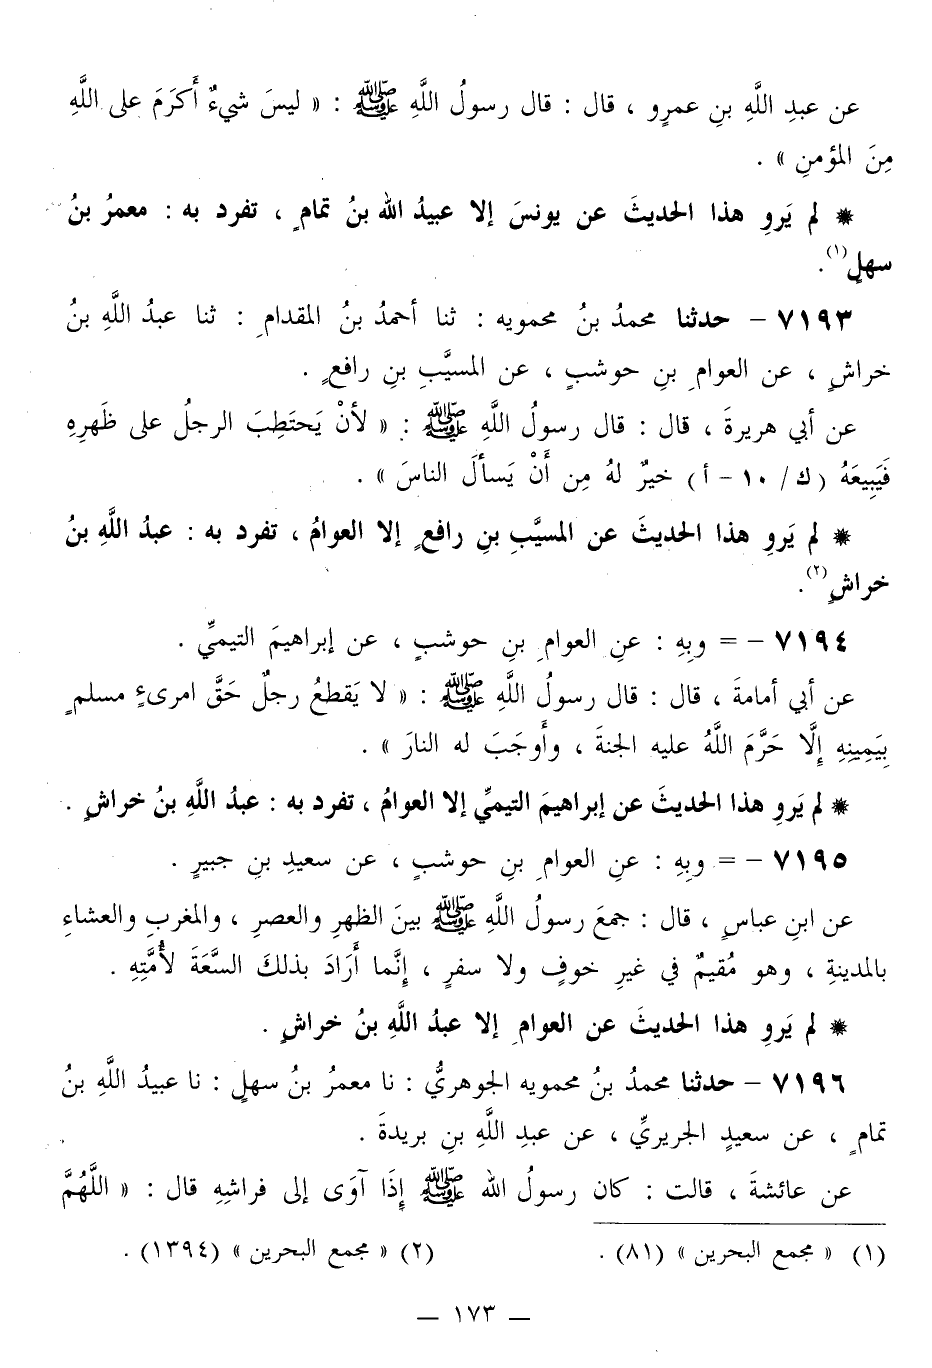 عن عبدِ اللَّهِ بنِ عمرٍو ، قال : قال رسولُ اللَّهِ ﷺ : « ليسَ شيءٌ أَكرَمَ على اللَّهِ
مِنَ المؤمنِ » .
* لم يَروِ هذا الحديثَ عن يونسَ إلا عبيدُ الله بنُ تمامٍ ، تفرد به : معمرُ بنُ
سهلٍ(١).
٧١٩٣ – حدثنا محمدُ بنُ محمويه : ثنا أحمدُ بنُ المقدامِ : ثنا عبدُ اللَّهِ بنُ
خراشٍ ، عن العوامِ بنِ حوشبٍ ، عن المسيَّبِ بنِ رافعٍ .
عن أبي هريرةَ ، قال : قال رسولُ اللَّهِ ﷺ : « لأنْ يَحتَطِبَ الرجلُ على ظَهرِهِ
فَيَبِيعَهُ (ك / ١٠ – أ) خيرٌ لهُ مِن أَنْ يَسألَ الناسَ » .
* لم يَروِ هذا الحديثَ عن المسيَّبِ بنِ رافعٍ إلا العوامُ ، تفرد به : عبدُ اللَّهِ بنُ
خراشٍ(٢).
٧١٩٤ – = وبِهِ : عنِ العوامِ بنِ حوشبٍ ، عن إبراهيمَ التيميِّ .
عن أبي أمامةَ ، قال : قال رسولُ اللَّهِ ﷺ : « لا يَقطعُ رجلٌ حَقَّ امرىءٍ مسلمٍ
بِيَمِينِهِ إِلَّا حَرَّمَ اللَّهُ عليه الجنةَ ، وأَوجَبَ له النارَ » .
* لم يَروِ هذا الحديثَ عن إبراهيمَ التيميِّ إلا العوامُ ، تفرد به : عبدُ اللَّهِ بنُ خراشٍ .
٧١٩٥ – = وبِهِ : عنِ العوامِ بنِ حوشبٍ ، عن سعيدِ بنِ جبيرٍ .
عن ابنِ عباسٍ ، قال : جمعَ رسولُ اللَّهِ ﷺ بينَ الظهرِ والعصرِ ، والمغربِ والعشاءِ
بالمدينةِ ، وهو مُقيمٌ في غيرِ خوفٍ ولا سفرٍ ، إنَّما أَرَادَ بذلكَ السَّعَةَ لأُمَّتِهِ .
* لم يَروِ هذا الحديثَ عن العوامِ إلا عبدُ اللَّهِ بنُ خراشٍ .
٧١٩٦ – حدثنا محمدُ بنُ محمويه الجوهريُّ : نا معمرُ بنُ سهلٍ : نا عبيدُ اللَّهِ بنُ
تمامٍ ، عن سعيدٍ الجريريِّ ، عن عبدِ اللَّهِ بنِ بريدةَ .
عن عائشةَ ، قالت : كان رسولُ الله ﷺ إِذَا آوَى إلى فراشِهِ قال : « اللَّهُمَّ
(١) « مجمع البحرين » (٨١) . (٢) « مجمع البحرين » (١٣٩٤) .
— ١٧٣ —